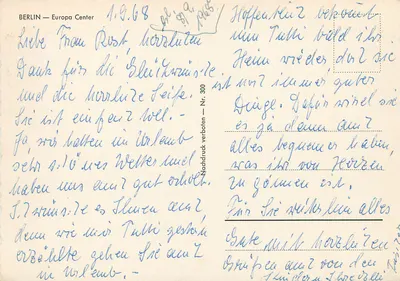 BERLIN — Europa Center
1.9.68
Liebe Frau Rost, herzlichen
Dank für die Glückwünsche
und die herzliche Seife.
Sie ist einfach toll. -
Ja, wir hatten im Urlaub
sehr schönes Wetter und
haben uns auch gut erholt.
Ich wünsche es Ihnen auch,
Wie mir Tutti gestern
erzählte gehen Sie auch
in Urlaub. -
Nachdruck verboten — Nr. 300
Hoffentlich bekommt
nun Tutti bald ihr
Heim wieder, daß sie
ist noch immer guter
Dinge. Dafür wird sie
es ja dann auch
alles bequemer haben,
was ihr von Herzen
zu gönnen ist.
Für Sie weiterhin alles
Gute mit herzlichen
Grüßen auch von den